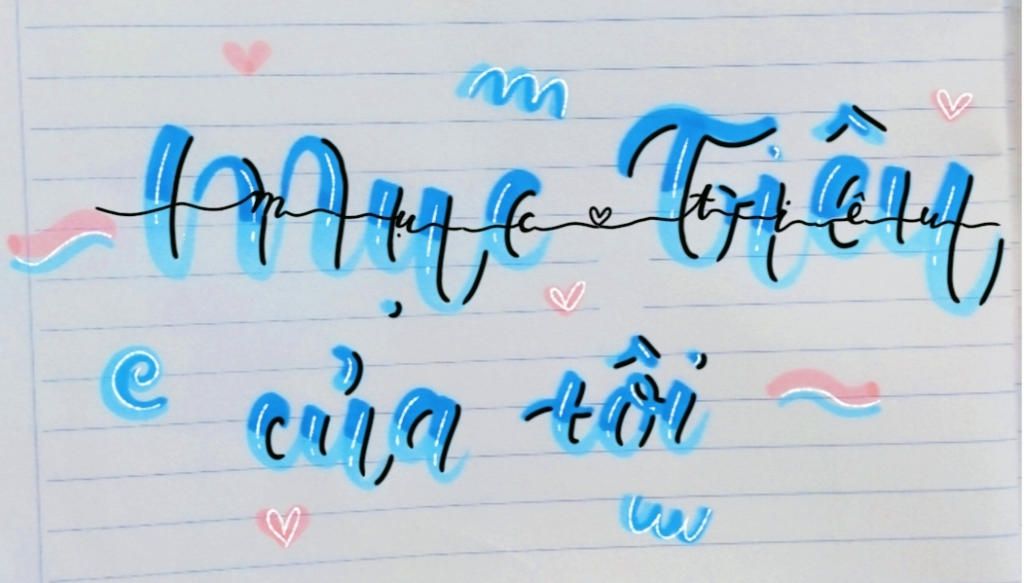 Mục Triêu
mục triêu
của tôi